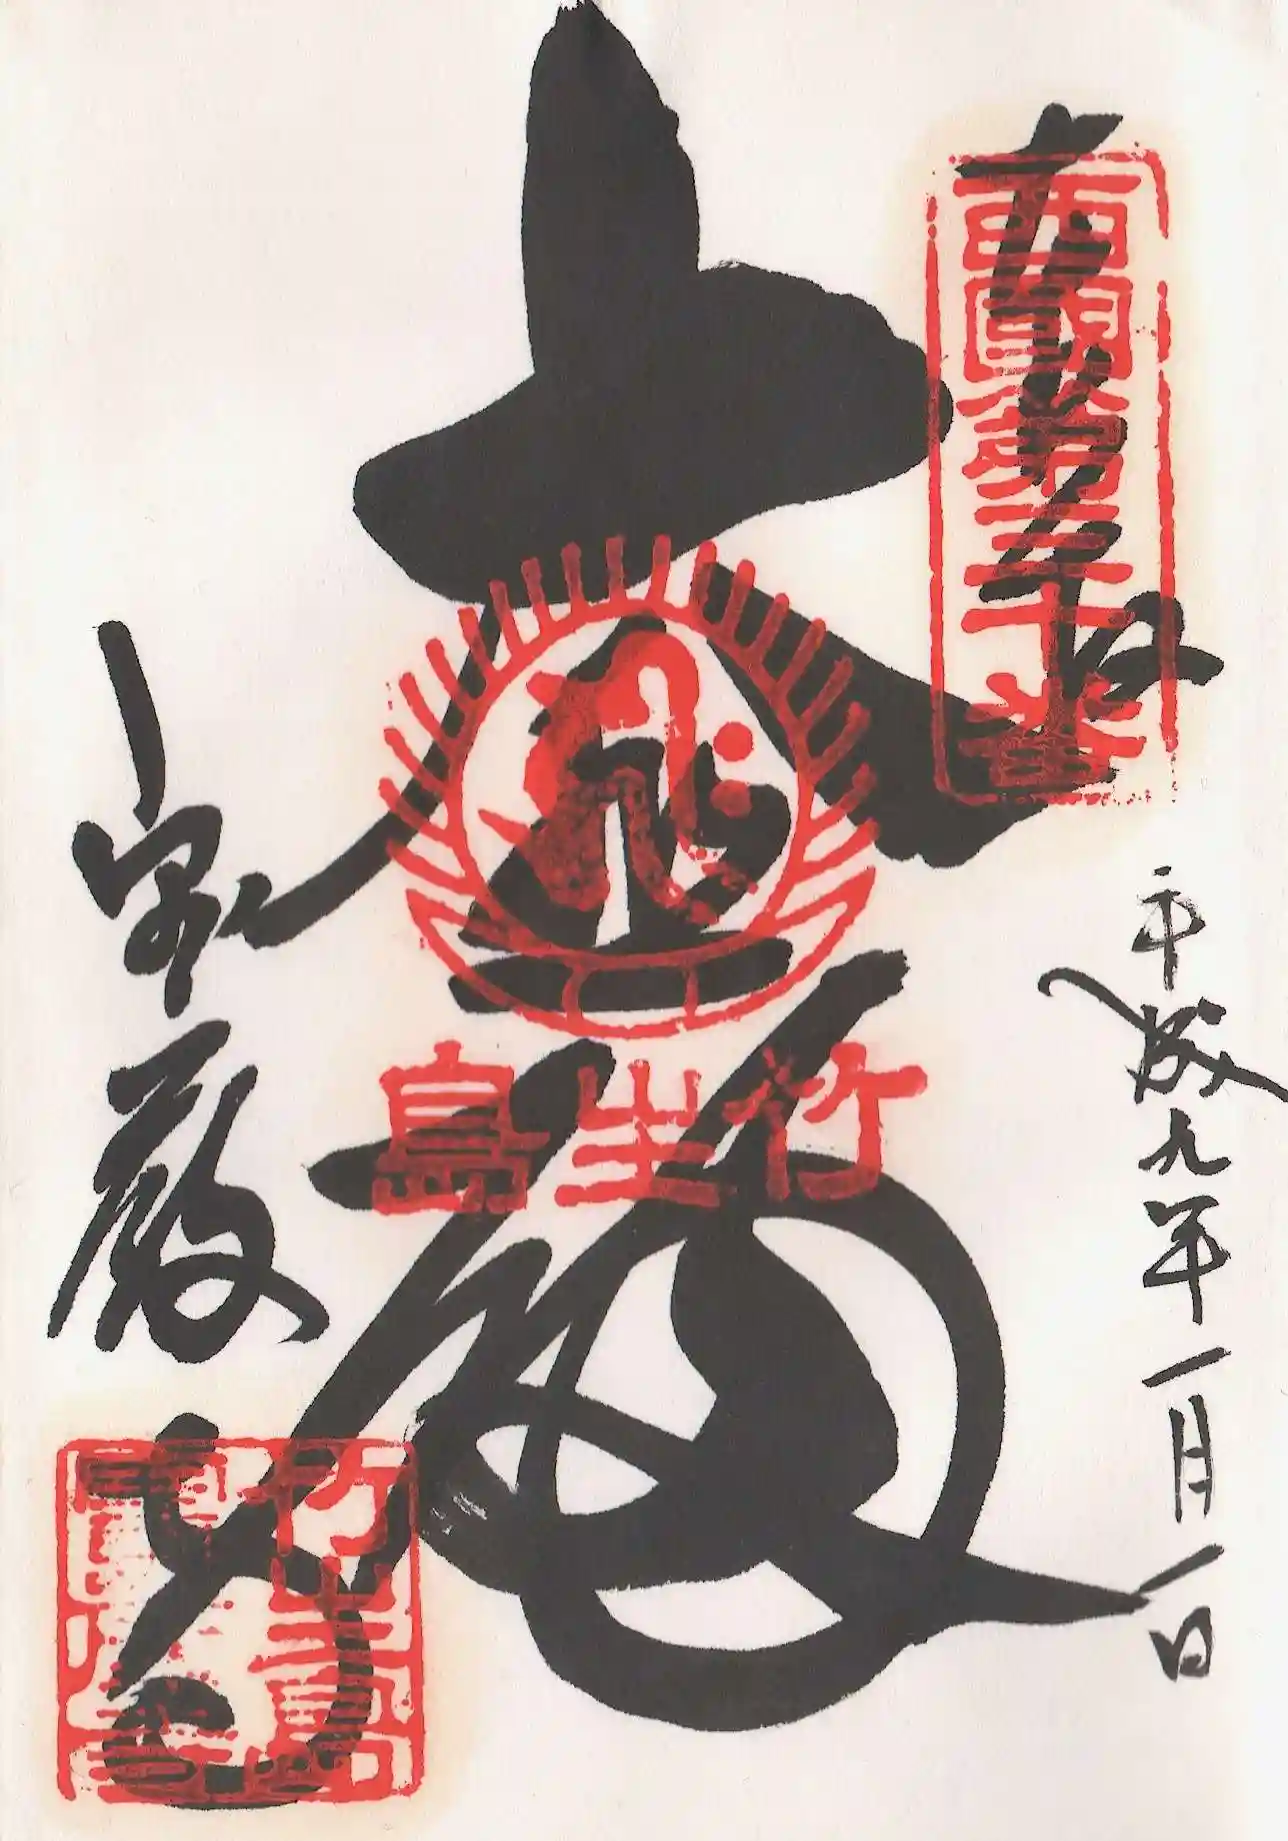 奉拝
西國第三十番
平成九年一月一日
大悲殿
竹生島
宝厳寺
竹生島